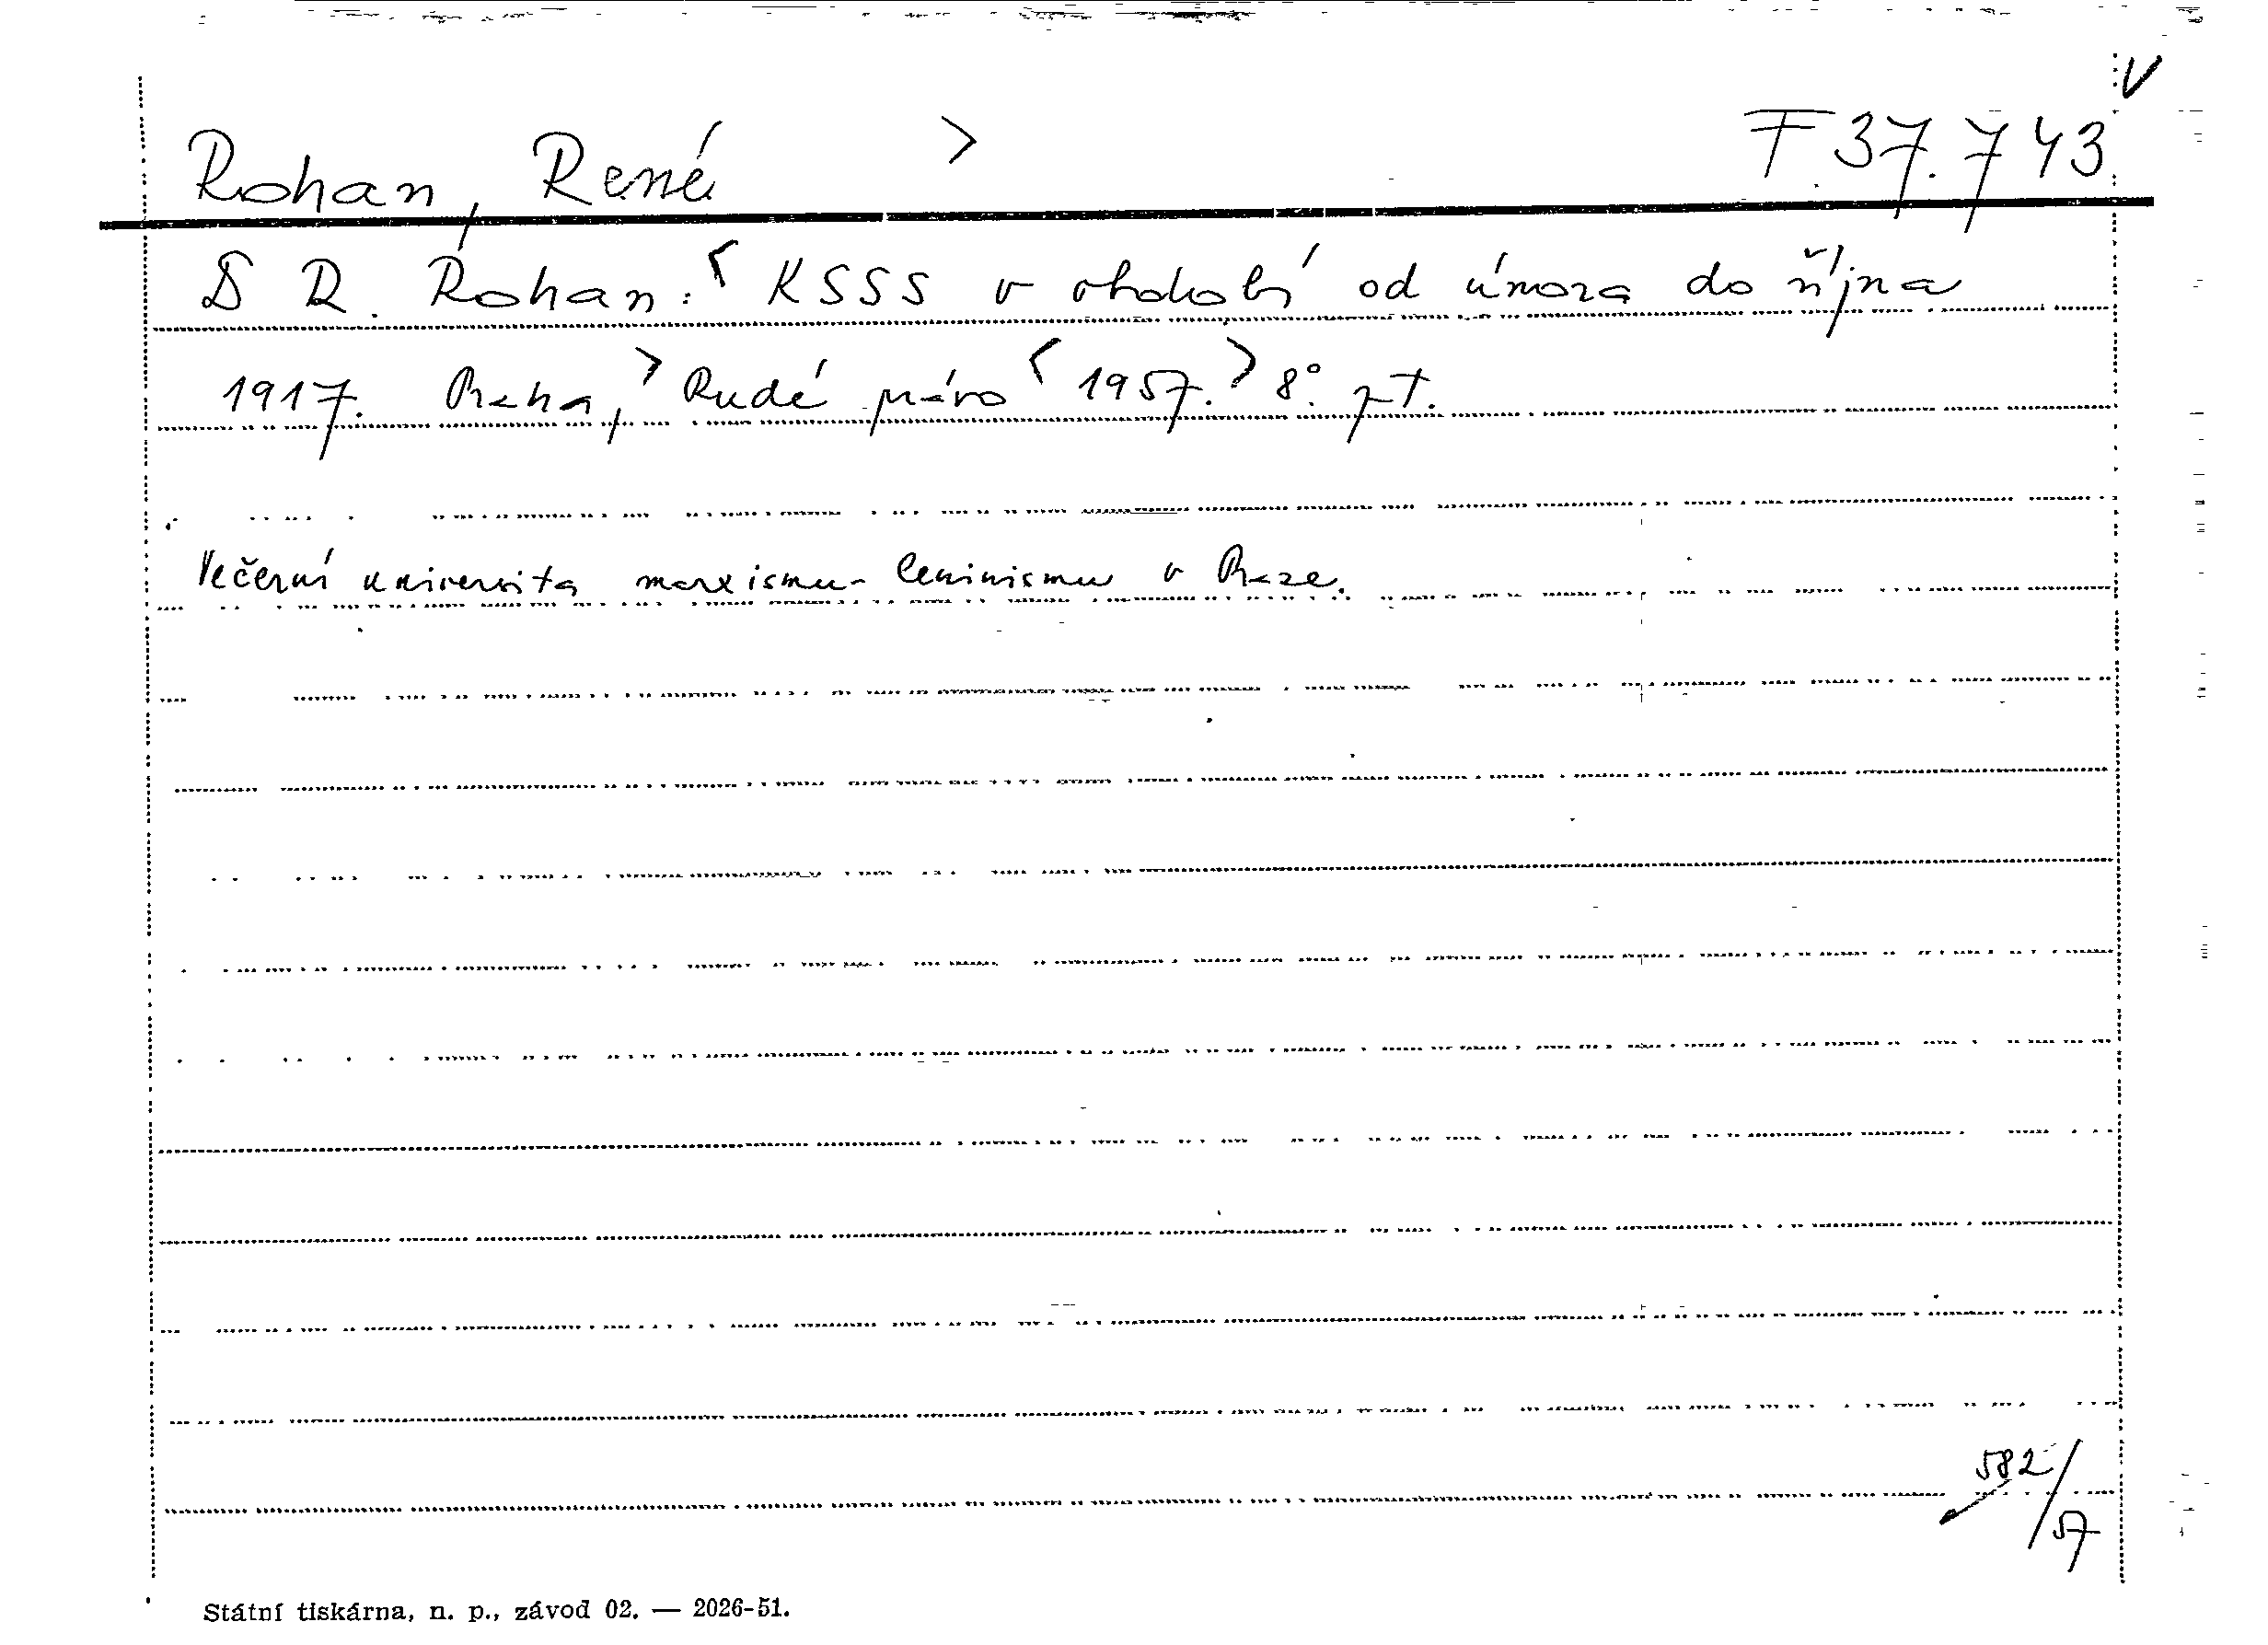 V
Rohan, René > F 37.743
D R. Rohan: < KSSS v období od února do října
1917. Praha, > Rudé právo < 1957. > 8°. pt.
Večerní universita marxismu-leninismu v Praze.
582/57
Státní tiskárna, n. p., závod 02. — 2026-51.